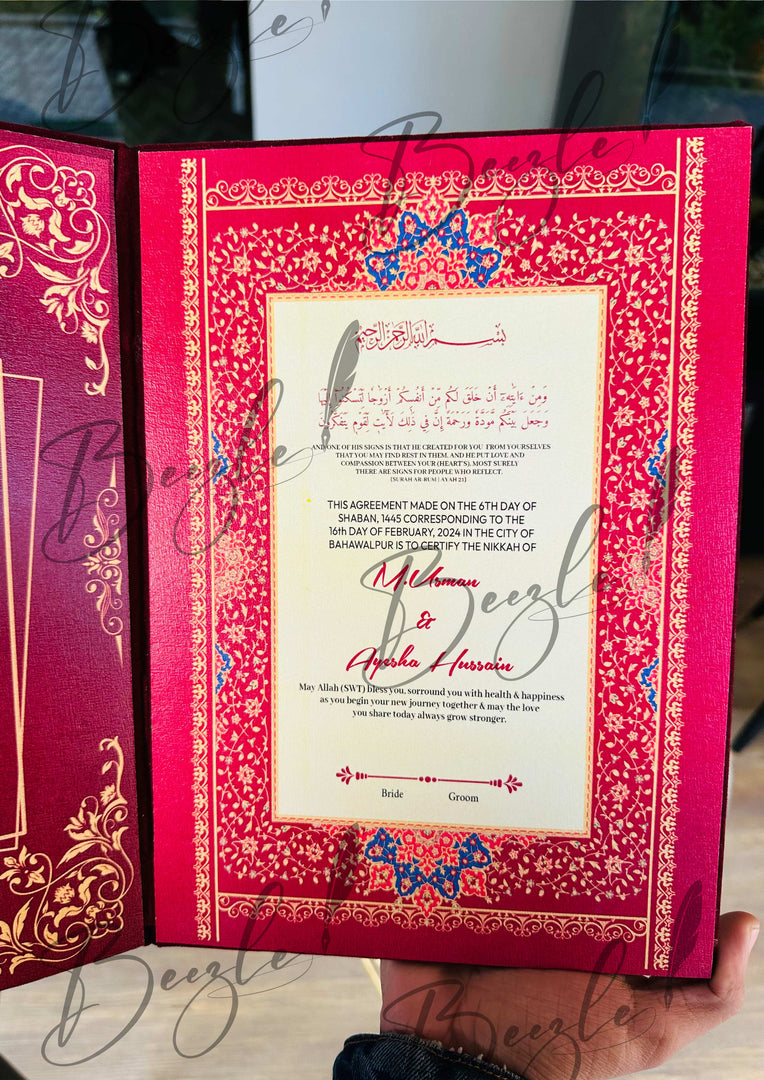 بسم الله الرحمن الرحيم
وَمِنْ ءَايَٰتِهِۦٓ أَنْ خَلَقَ لَكُم مِّنْ أَنفُسِكُمْ أَزْوَٰجًا لِّتَسْكُنُوٓا۟ إِلَيْهَا
وَجَعَلَ بَيْنَكُم مَّوَدَّةً وَرَحْمَةً إِنَّ فِى ذَٰلِكَ لَءَايَٰتٍ لِّقَوْمٍ يَتَفَكَّرُونَ
AND ONE OF HIS SIGNS IS THAT HE CREATED FOR YOU FROM YOURSELVES
THAT YOU MAY FIND REST IN THEM. AND HE PUT LOVE AND
COMPASSION BETWEEN YOUR (HEART'S). MOST SURELY
THERE ARE SIGNS FOR PEOPLE WHO REFLECT.
[SURAH AR-RUM | AYAH 21]
THIS AGREEMENT MADE ON THE 6TH DAY OF
SHABAN, 1445 CORRESPONDING TO THE
16th DAY OF FEBRUARY, 2024 IN THE CITY OF
BAHAWALPUR IS TO CERTIFY THE NIKKAH OF
M.Usman
&
Ayesha Hussain
May Allah (SWT) bless you, sorround you with health & happiness
as you begin your new journey together & may the love
you share today always grow stronger.
Bride Groom
Beezle!
Beezle!
Beezle!
Beezle!
Beezle!
Beezle!